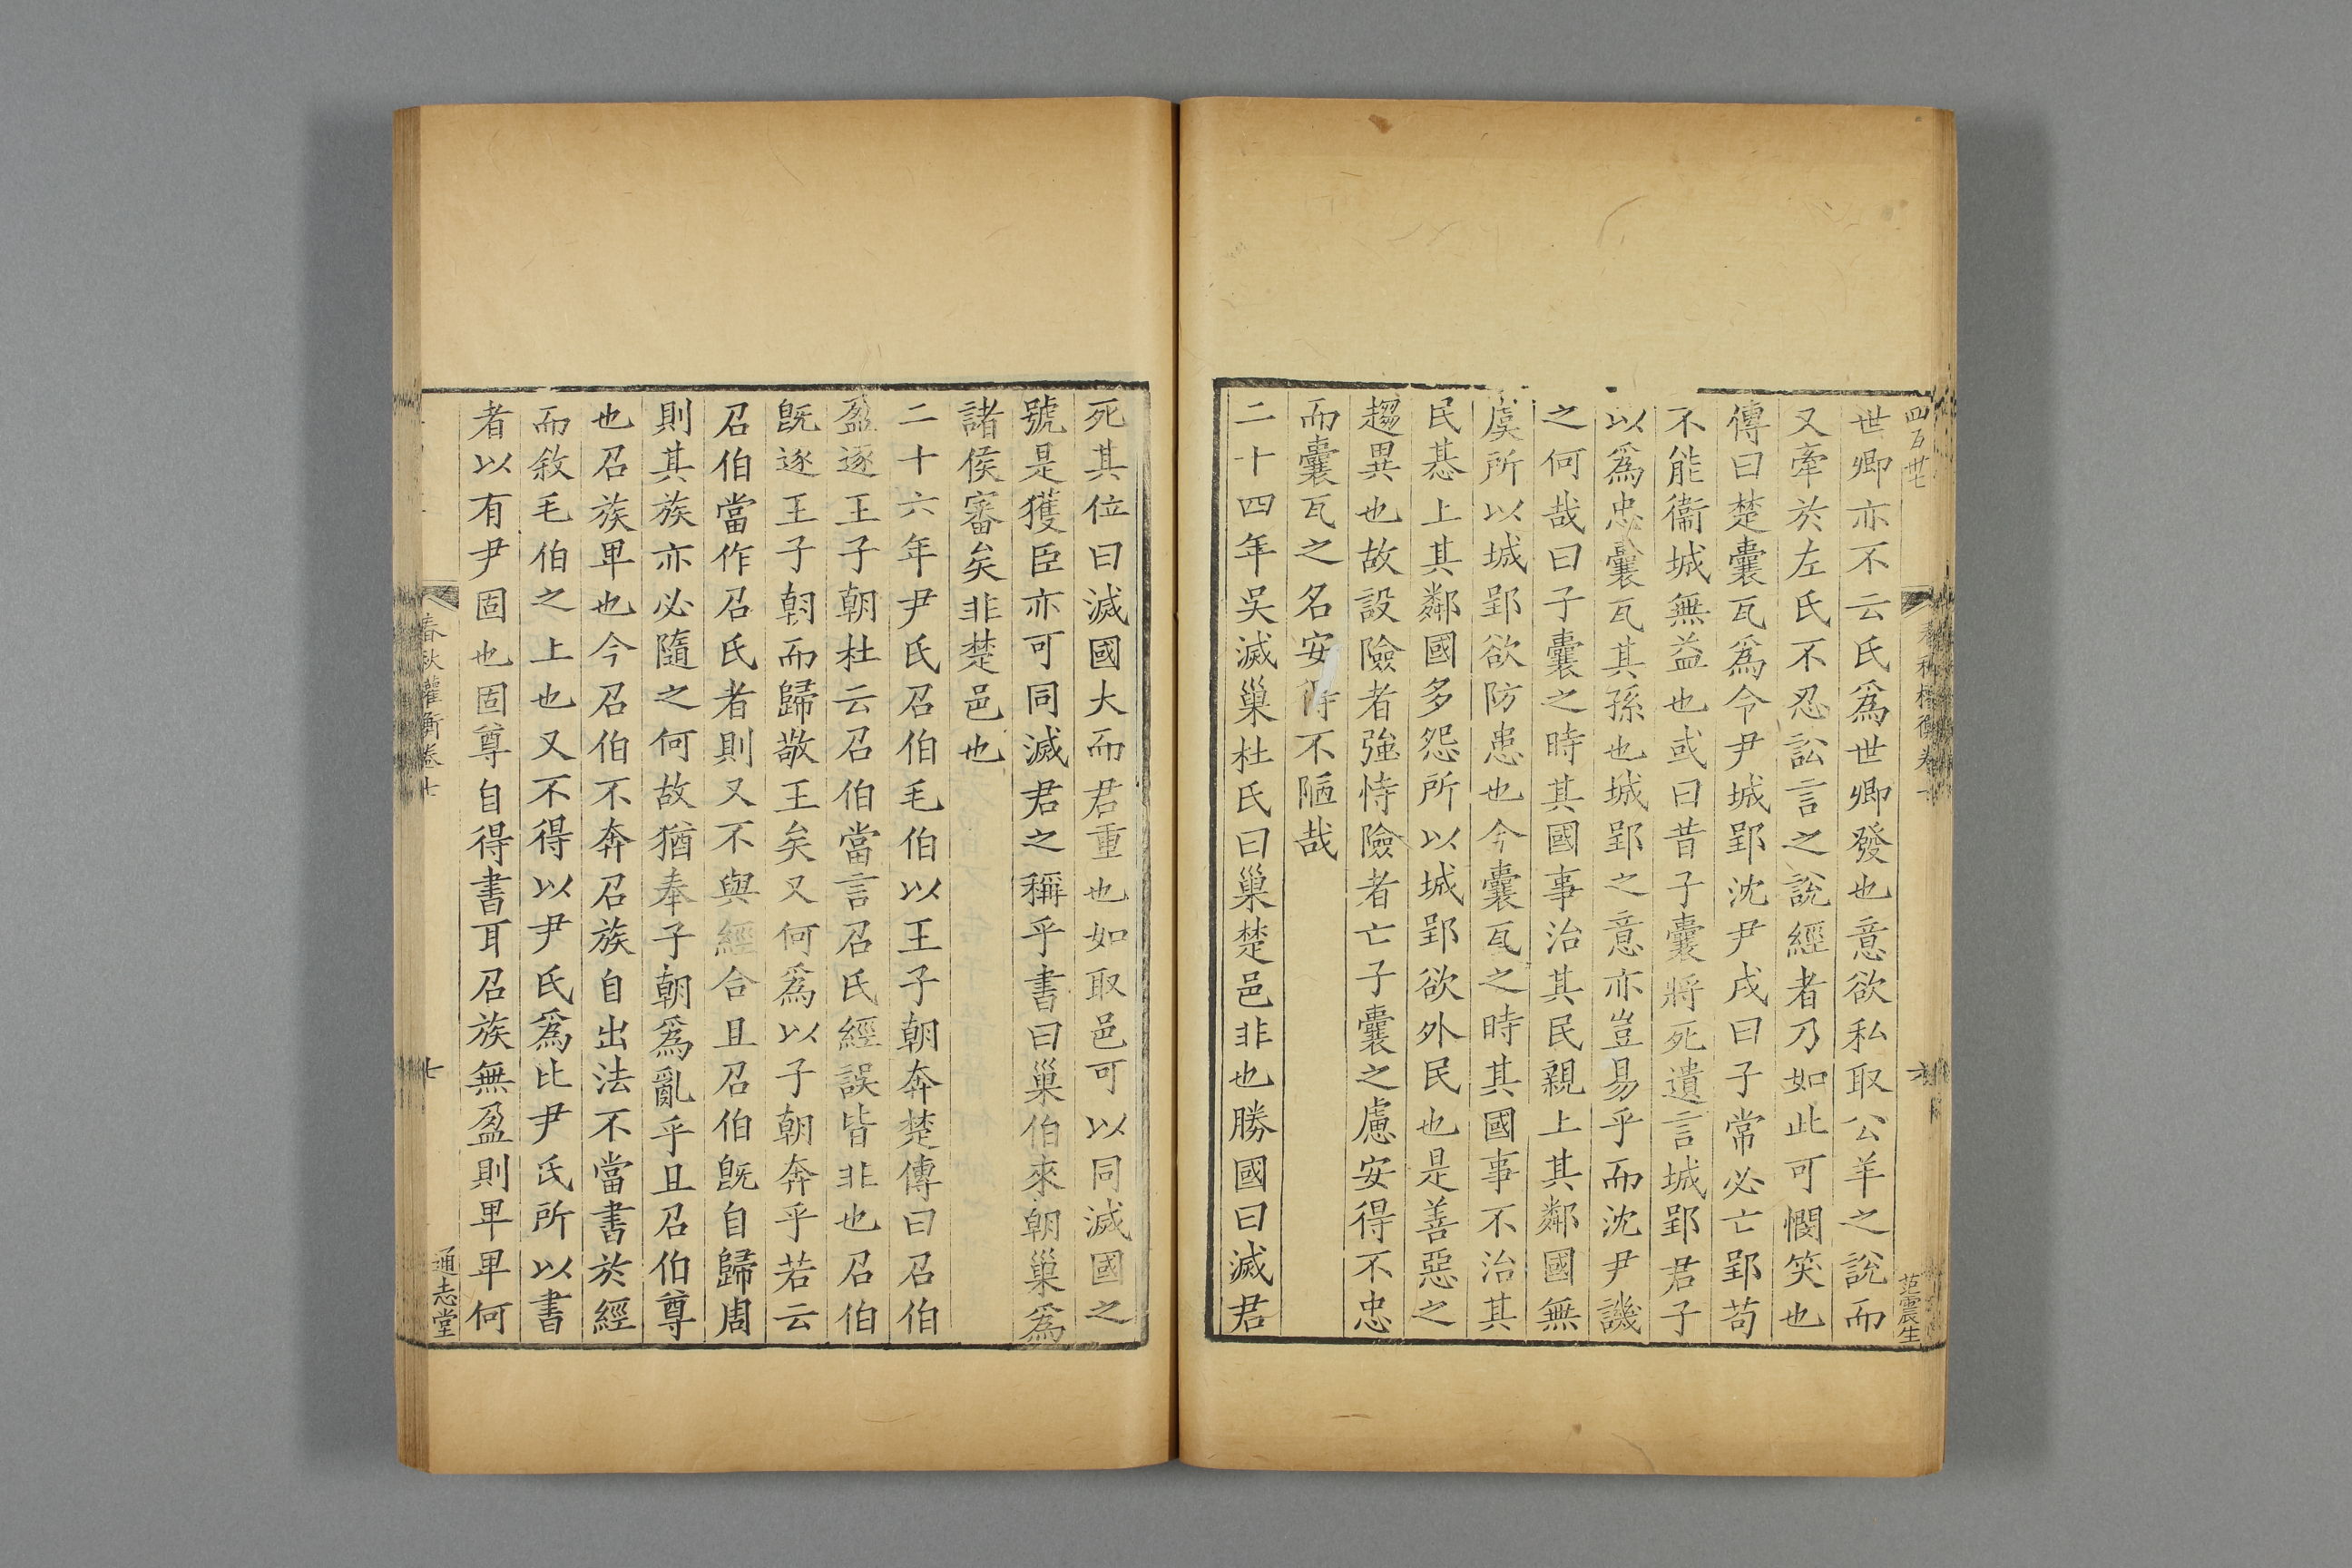 四百卅七
世卿亦不云氏爲世卿發也意欲私取公羊之說而
又牽於左氏不忍訟言之說經者乃如此可憫笑也
傳曰楚囊瓦爲令尹城郢沈尹戌曰子常必亡郢苟
不能衞城無益也或曰昔子囊將死遺言城郢君子
以爲忠囊瓦其孫也城郢之意亦豈易乎而沈尹譏
之何哉曰子囊之時其國事治其民親上其鄰國無
虞所以城郢欲防患也今囊瓦之時其國事不治其
民惎上其鄰國多怨所以城郢欲外民也是善惡之
趨異也故設險者強恃險者亡子囊之慮安得不忠
而囊瓦之名安得不陋哉
二十四年吳滅巢杜氏曰巢楚邑非也勝國曰滅君
范震生
死其位曰滅國大而君重也如取邑可以同滅國之
號是獲臣亦可同滅君之稱乎書曰巢伯來朝巢爲
諸侯審矣非楚邑也
二十六年尹氏召伯毛伯以王子朝奔楚傳曰召伯
盈逐王子朝杜云召伯當言召氏經誤皆非也召伯
旣逐王子朝而歸敬王矣又何爲以子朝奔乎若云
召伯當作召氏者則又不與經合且召伯旣自歸周
則其族亦必隨之何故猶奉子朝爲亂乎且召伯尊
也召族卑也今召伯不奔召族自出法不當書於經
而敘毛伯之上也又不得以尹氏爲比尹氏所以書
者以有尹固也固尊自得書耳召族無盈則卑卑何
春秋權衡卷七
七
通志堂